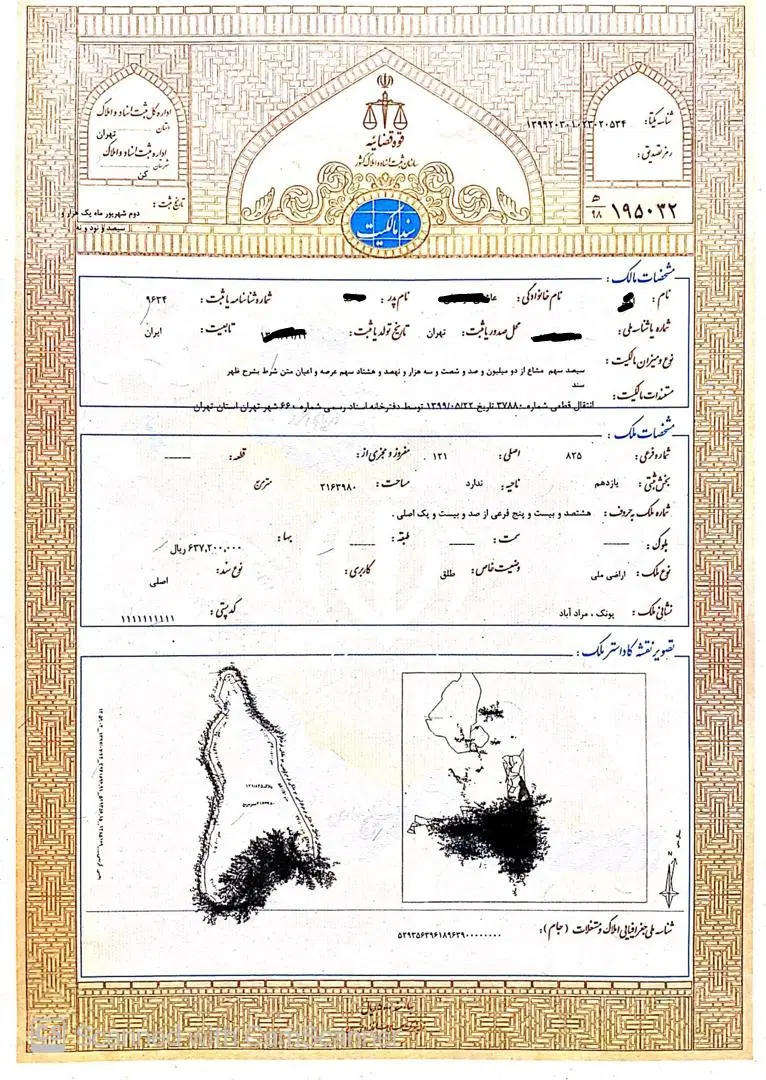 اداره کل ثبت اسناد و املاک
استان
تهران
اداره ثبت اسناد و املاک
شهرستان
کن
تاریخ ثبت :
دوم شهریور ماه یک هزار و
سیصد و نود و نه
قوه قضاییه
سازمان ثبت اسناد و املاک کشور
سند مالکیت
شناسه یکتا: ۱۳۹۹۲۰۳۰۱۰۲۳۰۲۰۵۳۴
رمز تصدیق :
۱۹۵۰۳۲ ه‍ ۹۸
مشخصات مالک :
نام : نام خانوادگی : نام پدر : شماره شناسنامه یا ثبت : ۹۶۳۴
شماره یا شناسه ملی : محل صدور یا ثبت : تهران تاریخ تولد یا ثبت : تابعیت : ایران
نوع و میزان مالکیت :
سیصد سهم مشاع از دو میلیون و صد و شصت و سه هزار و نهصد و هشتاد سهم عرصه و اعیان متن شرط بشرح ظهر
سند
مستندات مالکیت :
انتقال قطعی شماره ۳۷۸۸۰ تاریخ ۱۳۹۹/۰۵/۲۲ توسط دفترخانه اسناد رسمی شماره ۶۶۰ شهر تهران استان تهران
مشخصات ملک :
شماره فرعی : ۸۲۵ اصلی : ۱۲۱ مفروز و مجزی از : قطعه : ـــــ
بخش ثبتی : یازدهم ناحیه : ندارد مساحت : ۲۱۶۳۹۸۰ مترمربع
شماره ملک به حروف : هشتصد و بیست و پنج فرعی از صد و بیست و یک اصلی .
بلوک : ـــــ سمت : ـــــ طبقه : ـــــ بها : ۶۳۷,۲۰۰,۰۰۰ ریال
نوع ملک : اراضی ملی وضعیت خاص : طلق کاربری : نوع سند : اصلی
نشانی ملک : پونک ، مراد آباد کد پستی : ۱۱۱۱۱۱۱۱۱۱
تصویر نقشه کاداستر ملک :
N
شناسه ملی جغرافیایی املاک و مستغلات (جام) : ۵۳۹۳۵۶۳۹۶۱۸۹۶۳۹۰۰۰۰۰۰۰۰
Scanned with CamScanner